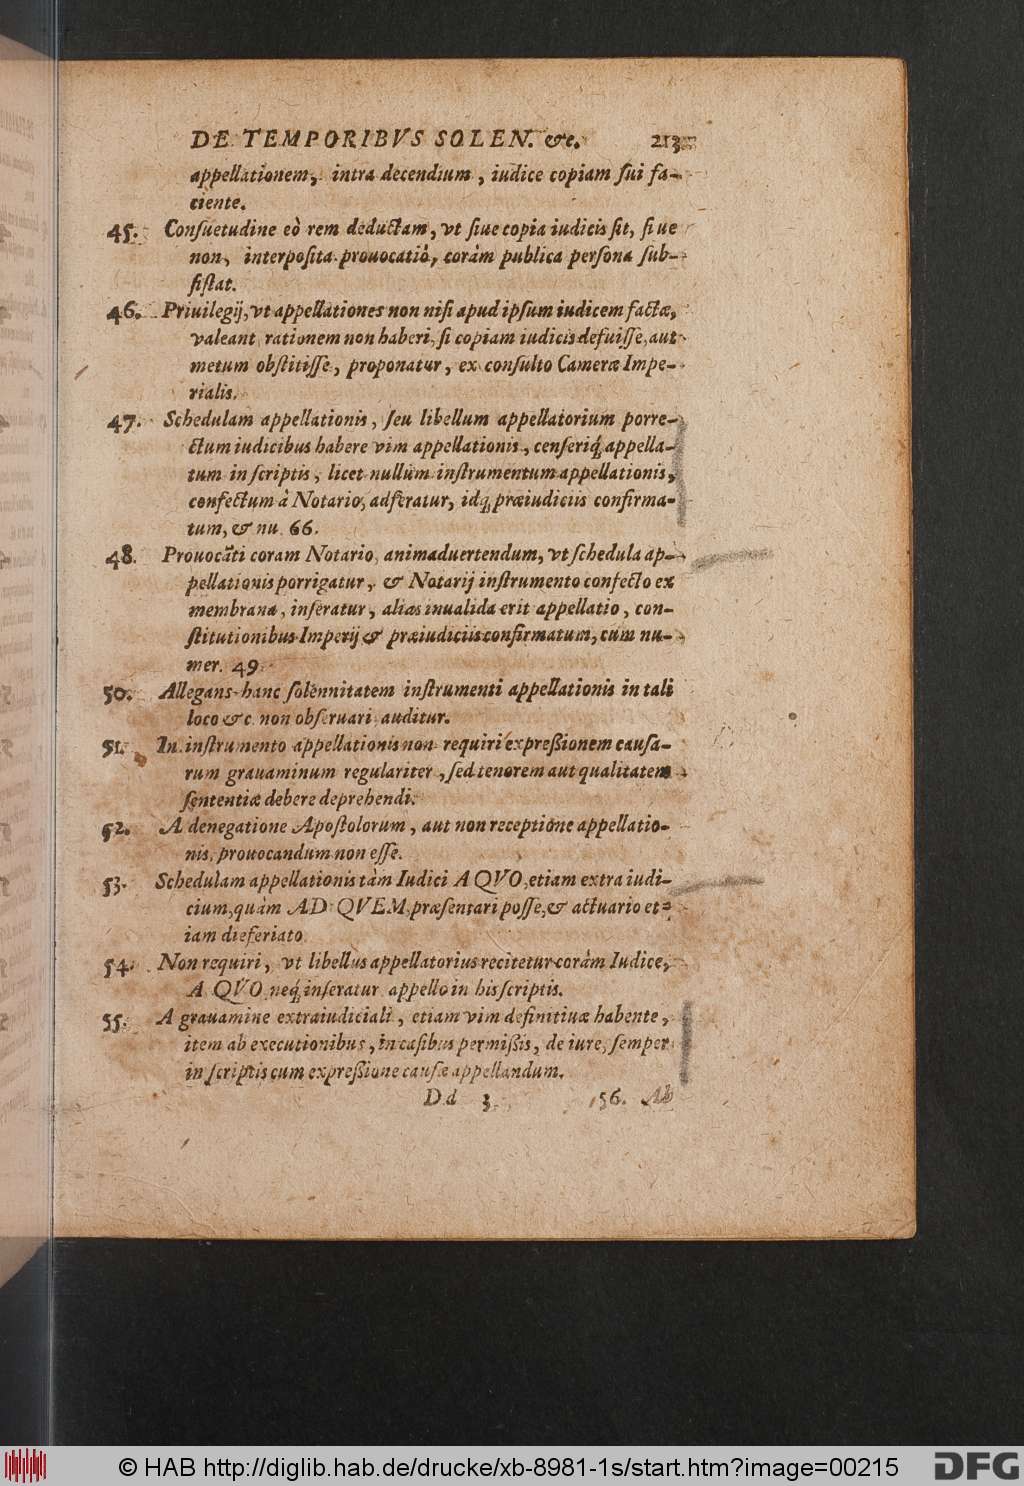 DE TEMPORIBVS SOLEN. &c. 213
appellationem, intra decendium, iudice copiam sui fa-
ciente.
45. Consuetudine eò rem deductam, vt siue copia iudicis sit, siue
non, interposita prouocatiò, coràm publica persona sub-
sistat.
46. Priuilegij, vt appellationes non nisi apud ipsum iudicem factæ,
valeant, rationem non haberi, si copiam iudicis defuisse, aut
metum obstitisse, proponatur, ex consulto Cameræ Impe-
rialis.
47. Schedulam appellationis, seu libellum appellatorium porre-
ctum iudicibus habere vim appellationis, censeriq́ appella-
tum in scriptis, licet nullum instrumentum appellationis,
confectum à Notario, adferatur, idq́ præiudiciis confirma-
tum, & nu. 66.
48. Prouocāti coram Notario, animaduertendum, vt schedula ap-
pellationis porrigatur, & Notarij instrumento confecto ex
membrana, inseratur, alias inualida erit appellatio, con-
stitutionibus Imperij & præiudiciis confirmatum, cum nu-
mer. 49.
50. Allegans hanc solennitatem instrumenti appellationis in tali
loco &c. non obseruari, auditur.
51. In instrumento appellationis non requiri expreßionem causa-
rum grauaminum regulariter, sed tenorem aut qualitatem
sententiæ debere deprehendi.
52. A denegatione Apostolorum, aut non receptione appellatio-
nis, prouocandum non esse.
53. Schedulam appellationis tàm Iudici A QVO, etiam extra iudi-
cium, quàm AD QVEM, præsentari posse, & actuario et-
iam die feriato.
54. Non requiri, vt libellus appellatorius recitetur coràm Iudice,
A QVO, neq́ inseratur, appello in his scriptis.
55. A grauamine extraiudiciali, etiam vim definitiuæ habente,
item ab executionibus, in casibus permißis, de iure, semper
in scriptis cum expreßione causæ appellandum.
Dd 3 56. Ab
© HAB http://diglib.hab.de/drucke/xb-8981-1s/start.htm?image=00215
DFG